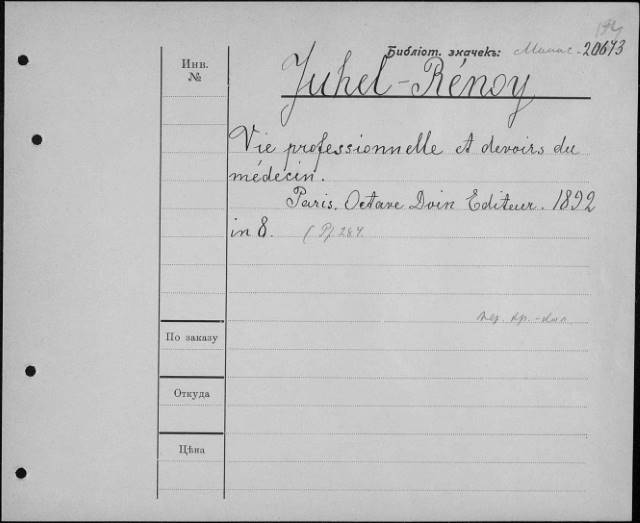 Библіот. значекъ: 20673
Инв.
№
Juhel-Rénoy
Vie professionnelle et devoirs du
médecin.
Paris. Octave Doin Editeur. 1892
in 8.
По заказу
Откуда
Цѣна